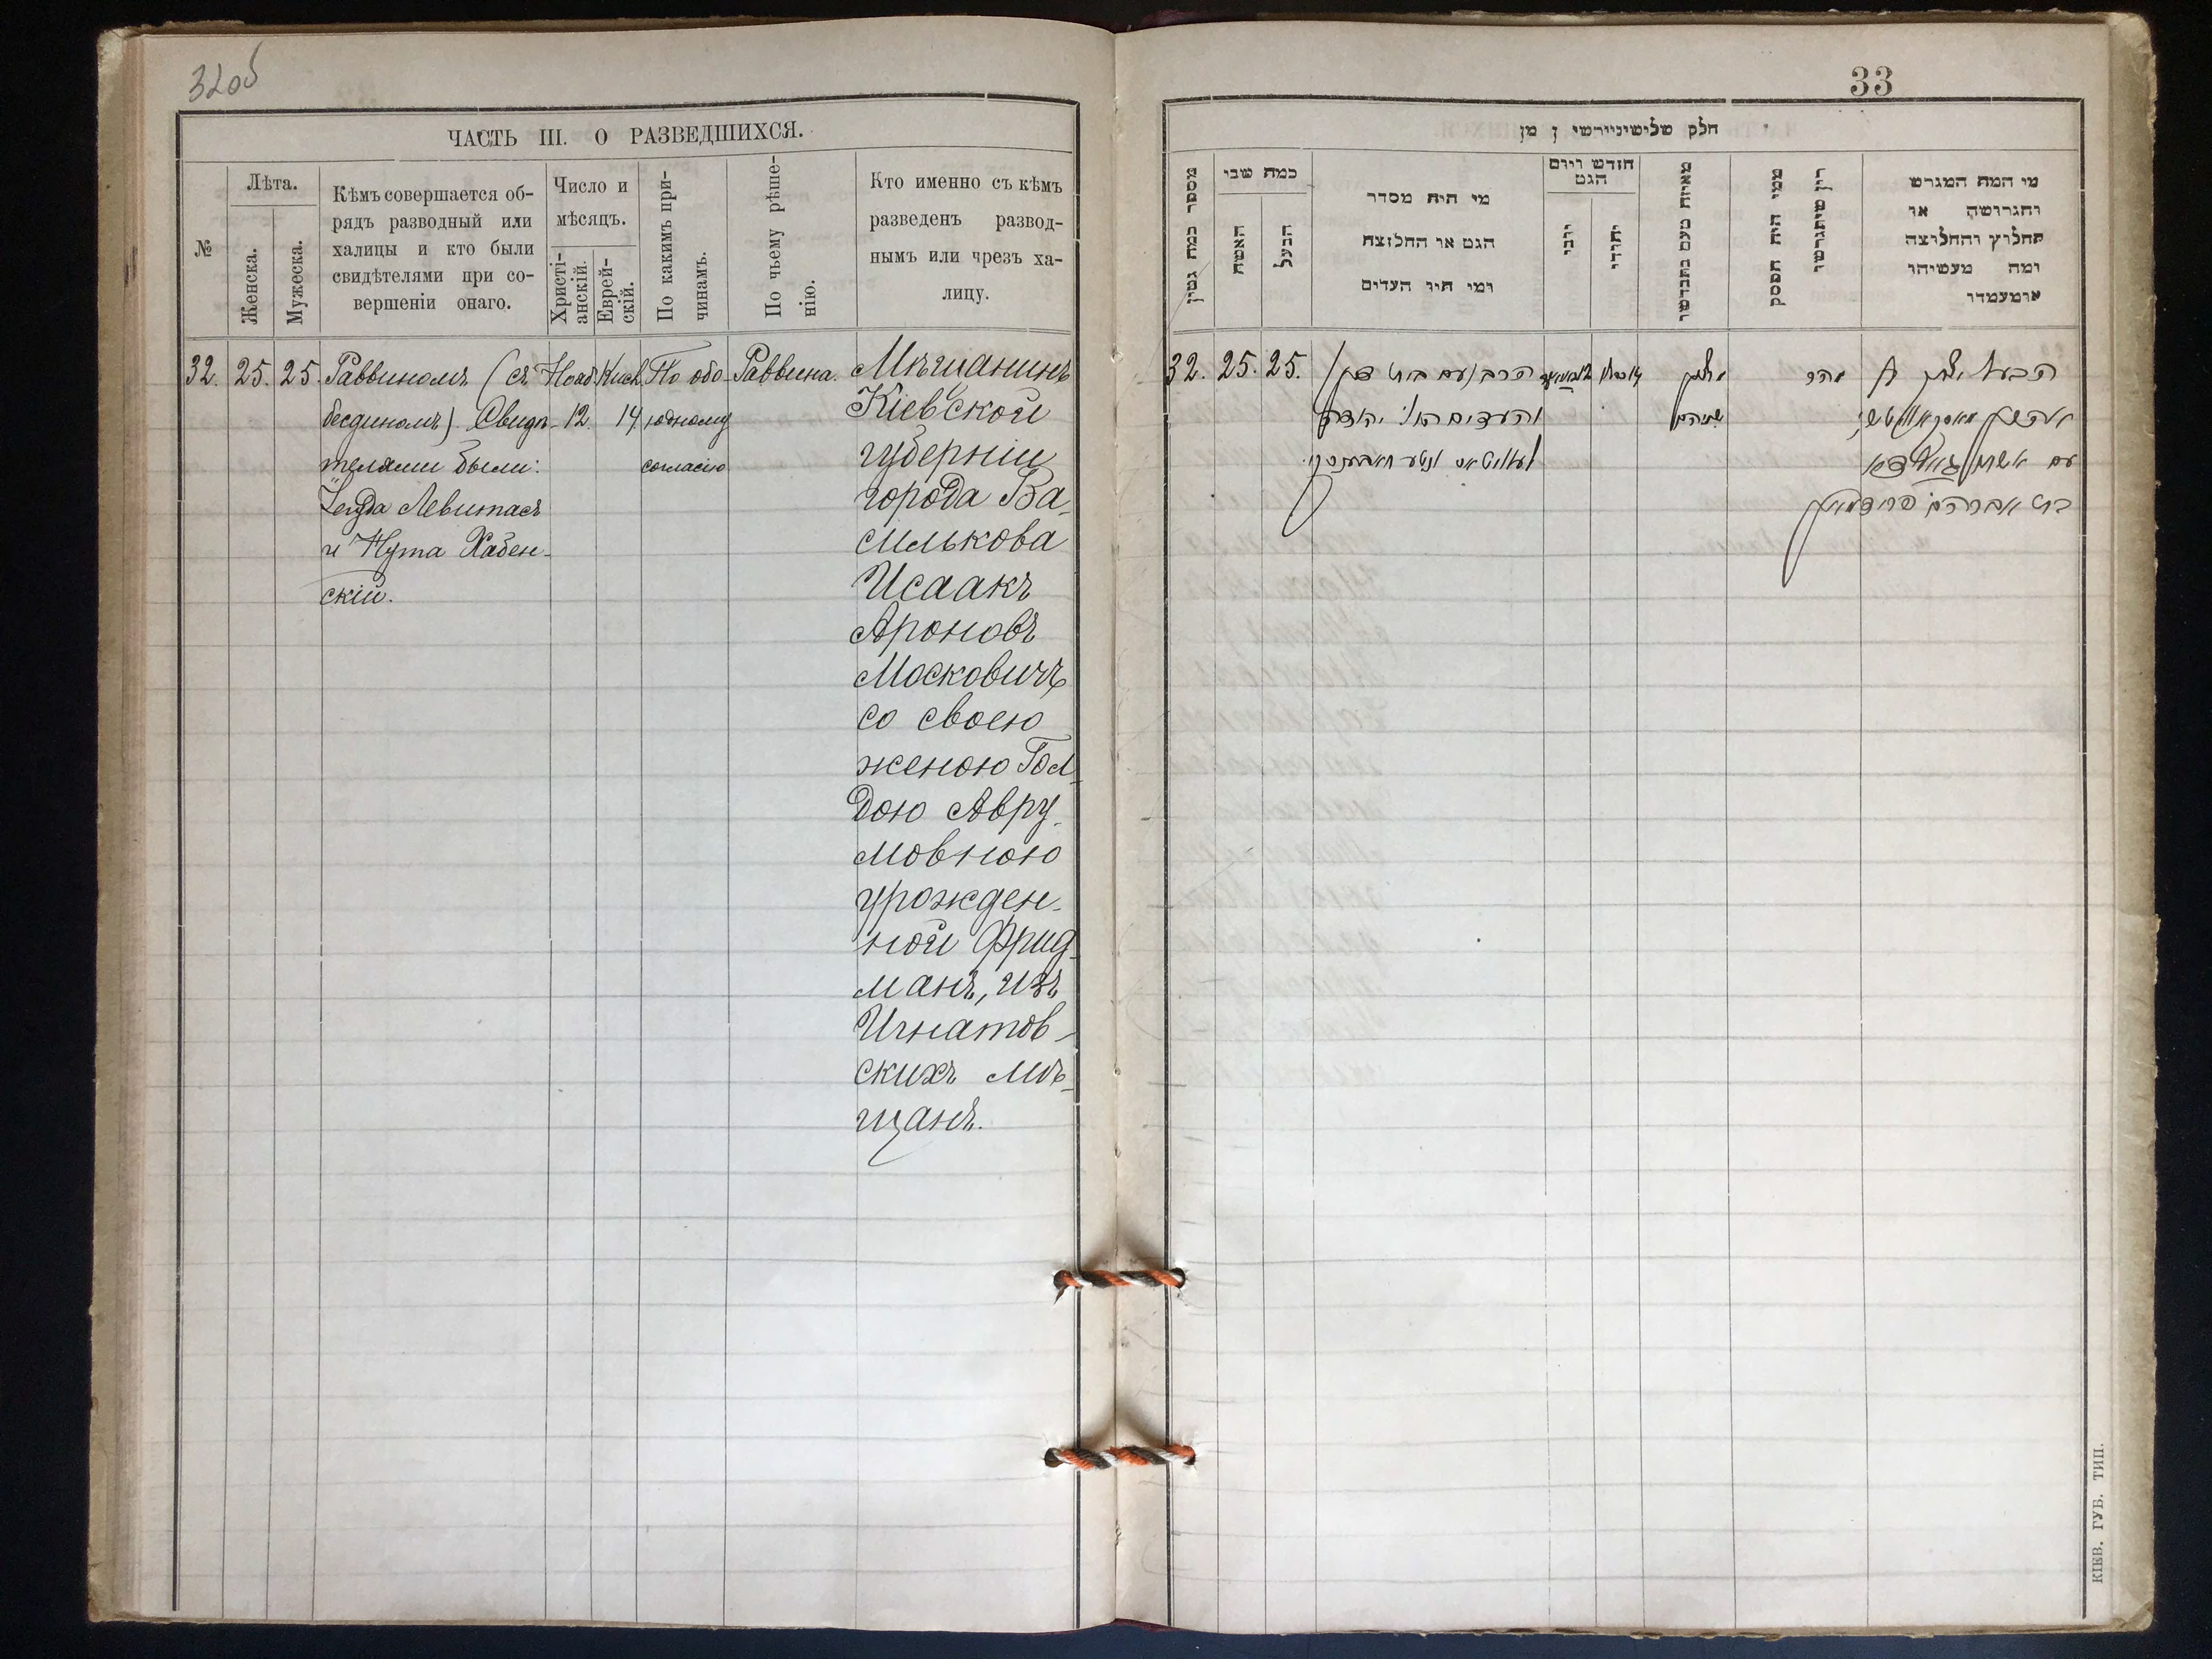 32об
ЧАСТЬ III. О РАЗВЕДШИХСЯ.
№
Лѣта.
Женска.
Мужеска.
Кѣмъ совершается об-
рядъ разводный или
халицы и кто были
свидѣтелями при со-
вершеніи онаго.
Число и
мѣсяцъ.
Христі-
анскій.
Еврей-
скій.
По какимъ при-
чинамъ.
По чьему рѣше-
нію.
Кто именно съ кѣмъ
разведенъ развод-
нымъ или чрезъ ха-
лицу.
32. 25. 25.
Раввиномъ (съ
бесдиномъ). Свидѣ-
телями были:
Іегуда Левитасъ
и Нута Хабен-
скій.
Нояб.
12.
Кисл.
14.
По обо-
юдному
согласію
Раввина.
Мѣщанинъ
Кіевской
губерніи
города Ва-
силькова
Исаакъ
Ароновъ
Московичъ
со своею
женою Гол-
дою Авру-
мовною
урожден-
ной Фрид-
манъ, изъ
Игнатов-
скихъ мѣ-
щанъ.
33
מספר כמה גטין
כמה שני
האשה
הבעל
מי היה מסדר
הגט או החלוצה
ומי היו העדים
חודש ויום
הגט
יהודי
ממי היה הפסק
דין שיתגרשו
מי המה המגרש
והגרושה או
החלוץ והחלוצה
ומה מעשיהו
ומעמדו
32. 25. 25.
הרב (עם בית דין)
והעדים
הבעל יצחק
עם אשתו גאלדא
בת אברהם פרידמאן
КІЕВ. ГУБ. ТИП.